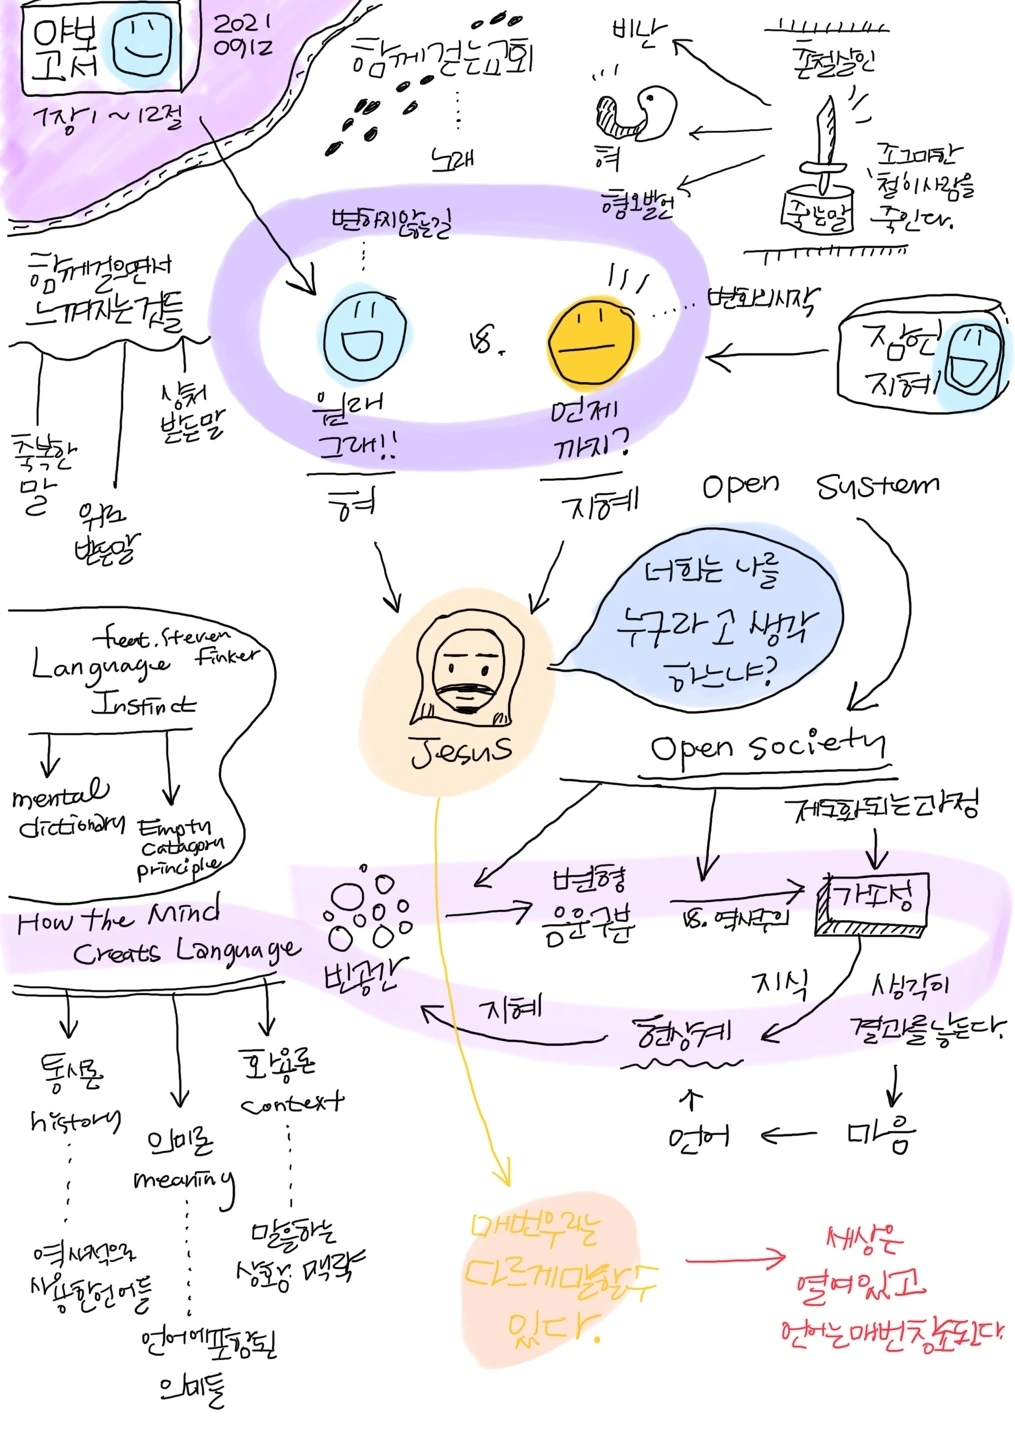 야보
고서
2021
0912
1장1~12절
함께걷는교회
노래
비난
혀
혐오발언
촌철살인
죽는말
조그마한
철이사람을
죽인다.
함께걸으면서
느껴지는것들
축복한
말
위로
받은말
상처
받은말
변하지않는길
vs.
변화의시작
원래
그래!!
혀
언제
까지?
지혜
잠언
지혜
Open System
너희는 나를
누구라고 생각
하느냐?
Jesus
Open Society
feat. Steven
Pinker
Language
Instinct
mental
dictionary
Empty
Catagory
principle
How the Mind
Creats Language
통시론
history
역사적으로
사용한언어들
의미론
meaning
언어에포함된
의미들
화용론
context
말을하는
상황, 맥락
빈공간
변형
음운구분
vs. 역사주의
제도화되는과정
가소성
지식
현상계
지혜
생각이
결과를낳는다.
마음
언어
매번우리는
다르게말할수
있다.
세상은
열려있고
언어는매번창조된다.